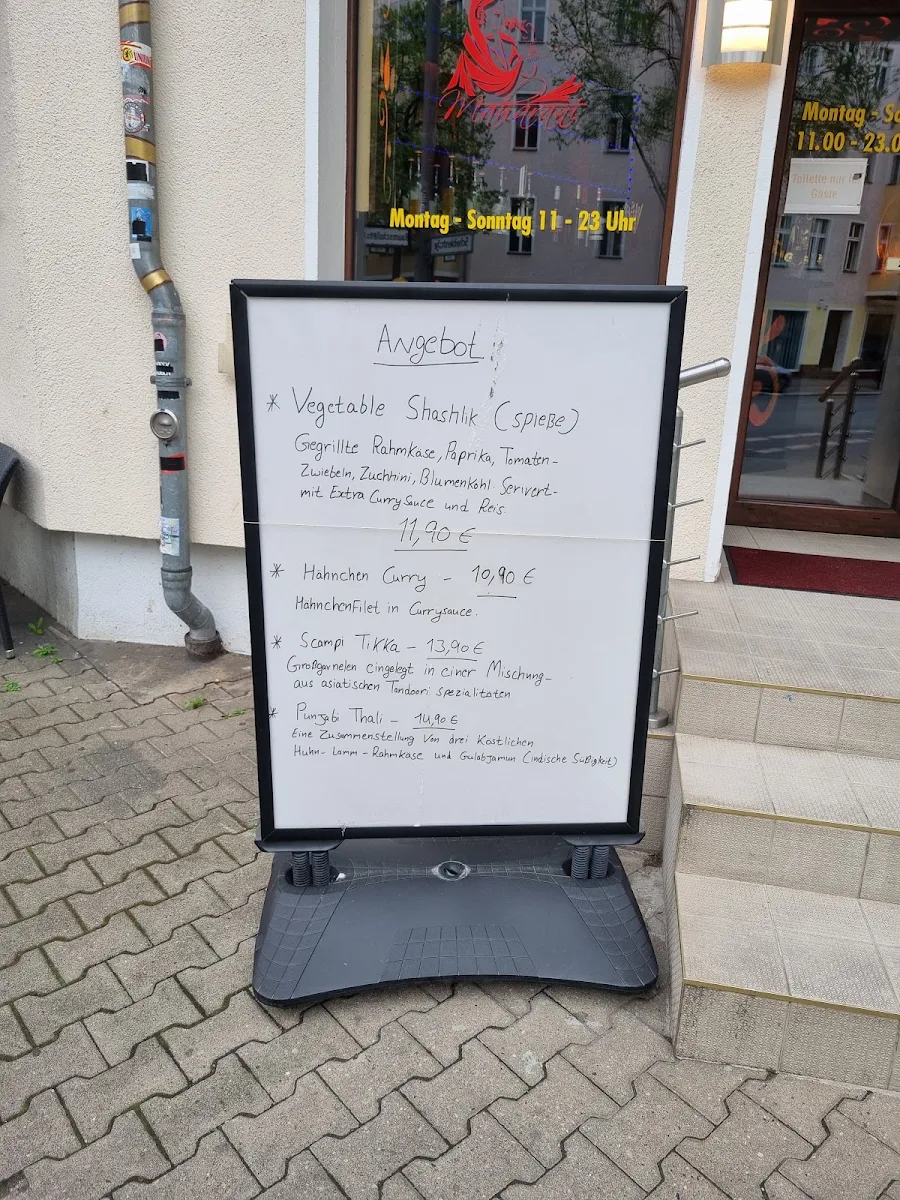 Montag - Sonntag 11 - 23 Uhr
Montag - So
11.00 - 23.0
Toilette nur für
Gäste
Angebot
* Vegetable Shashlik (spieße)
Giegrillte Rahmkäse, Paprika, Tomaten-
Zwiebeln, Zuchhini, Blumenkohl. Serivert-
mit Extra Curry sauce und Reis.
11,90 €
* Hähnchen Curry - 10,90 €
HähnchenFilet in Currysauce.
* Scampi Tikka - 13,90 €
Großgarnelen eingelegt in einer Mischung-
aus asiatischen Tandoori spezialitäten
* Punjabi Thali - 14,90 €
Eine Zusammenstellung von drei Köstlichen
Huhn- Lamm - Rahmkäse und Gulabjamun (indische Süßigkeit)